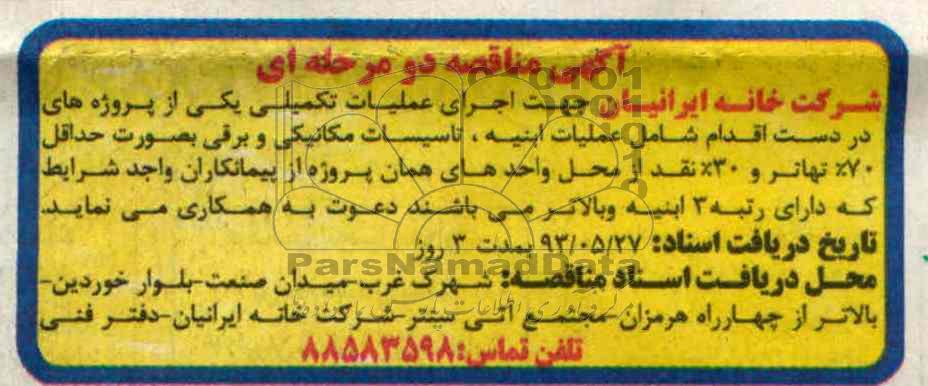 آگهی مناقصه دو مرحله ای
شرکت خانه ایرانیان جهت اجرای عملیات تکمیلی یکی از پروژه های
در دست اقدام شامل عملیات ابنیه ، تاسیسات مکانیکی و برقی بصورت حداقل
۷۰٪ تهاتر و ۳۰٪ نقد از محل واحد های همان پروژه از پیمانکاران واجد شرایط
که دارای رتبه ۳ ابنیه وبالاتر می باشند دعوت به همکاری می نماید.
تاریخ دریافت اسناد: ۹۳/۰۵/۲۷ بمدت ۳ روز
ParsNamadData
محل دریافت اسناد مناقصه: شهرک غرب-میدان صنعت-بلوار خوردین-
بالاتر از چهارراه هرمزان-مجتمع آتی سنتر-شرکت خانه ایرانیان-دفتر فنی
تلفن تماس: ۸۸۵۸۳۵۹۸